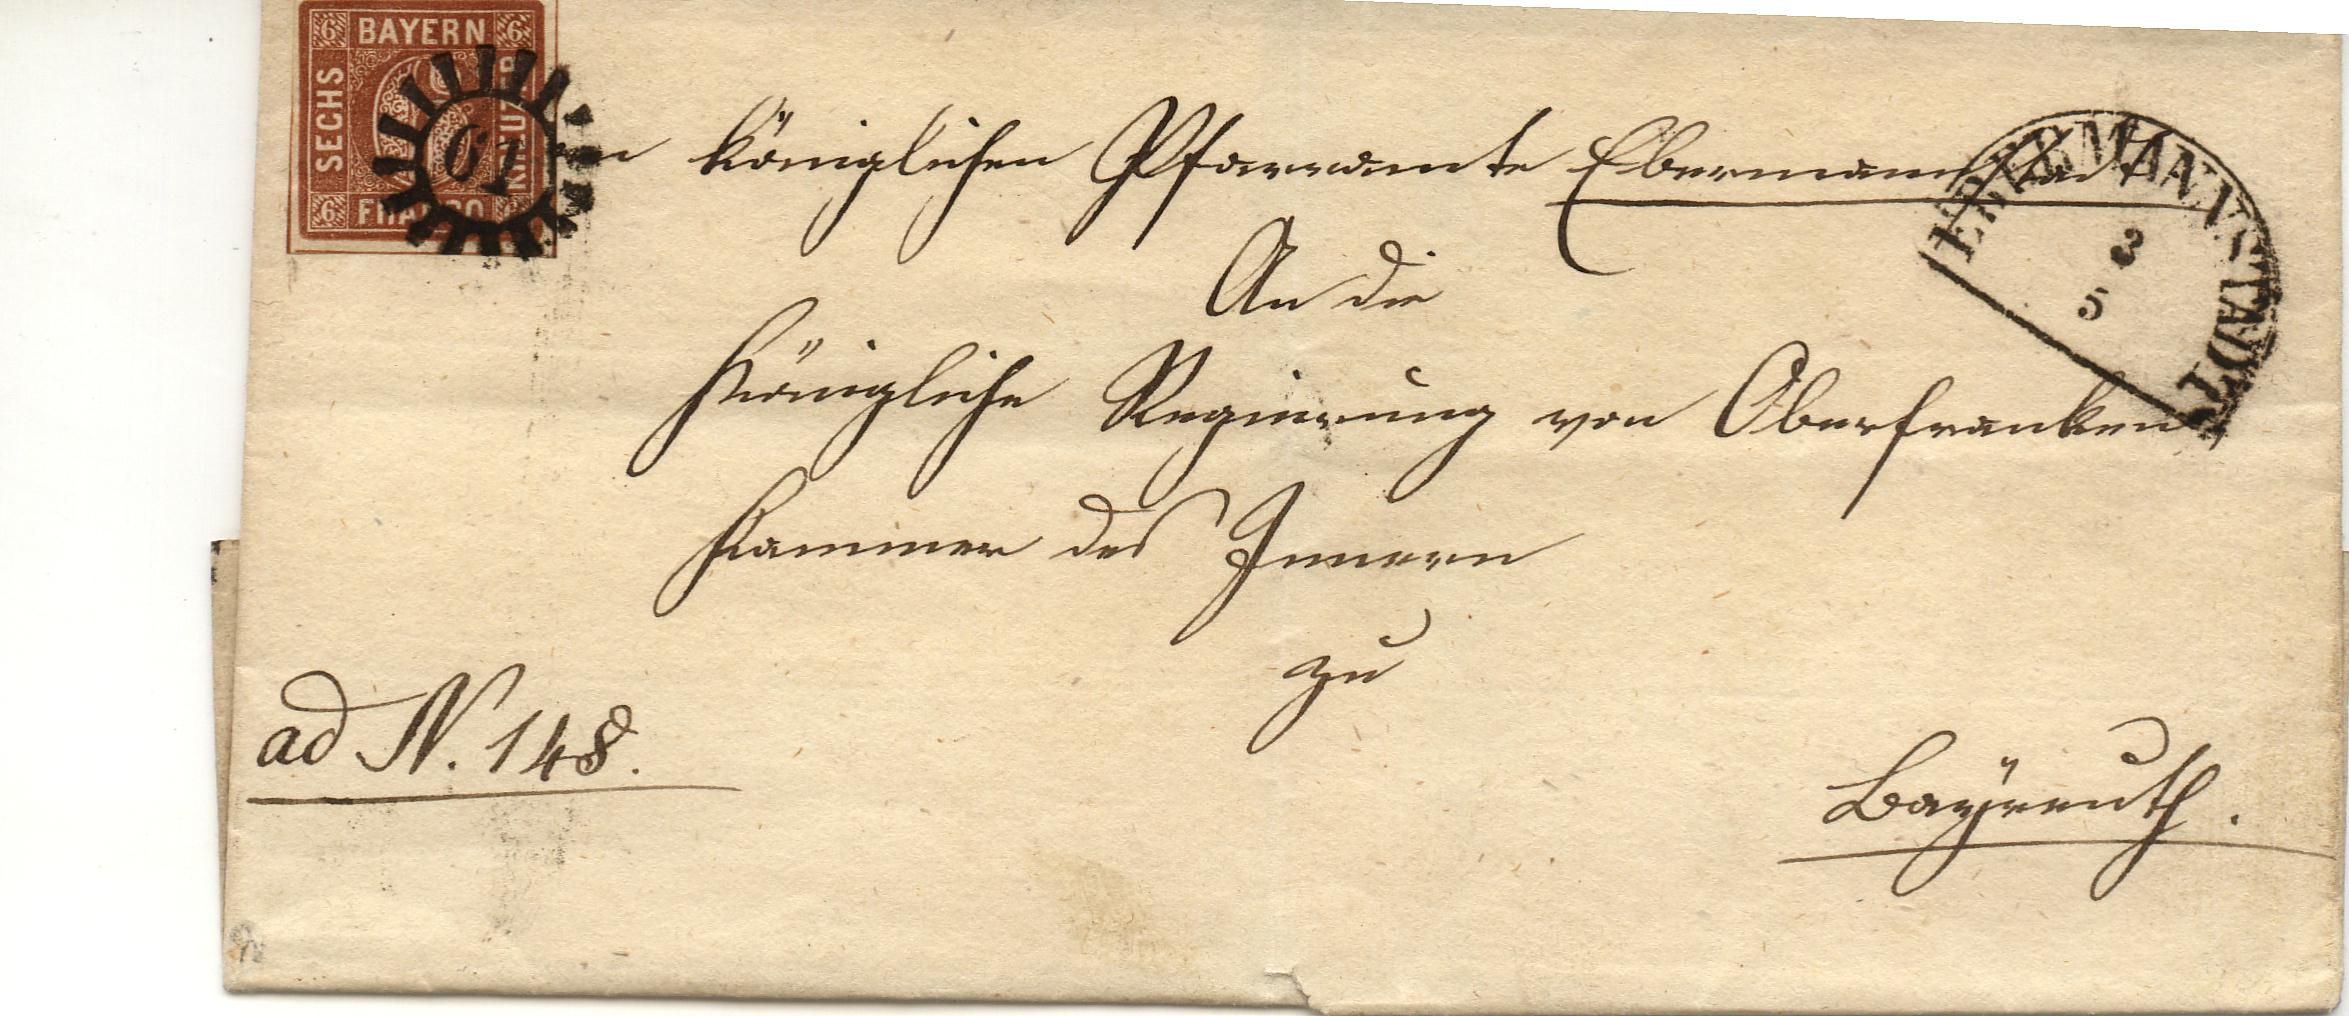 6 BAYERN 6
SECHS
KREUZER
6 FRANCO
61
königlichen Pfarramte Ebermannstadt
EBERMANNSTADT
3
5
An die
Königliche Regierung von Oberfranken
Kammer des Innern
zu
ad N. 148.
Bayreuth.